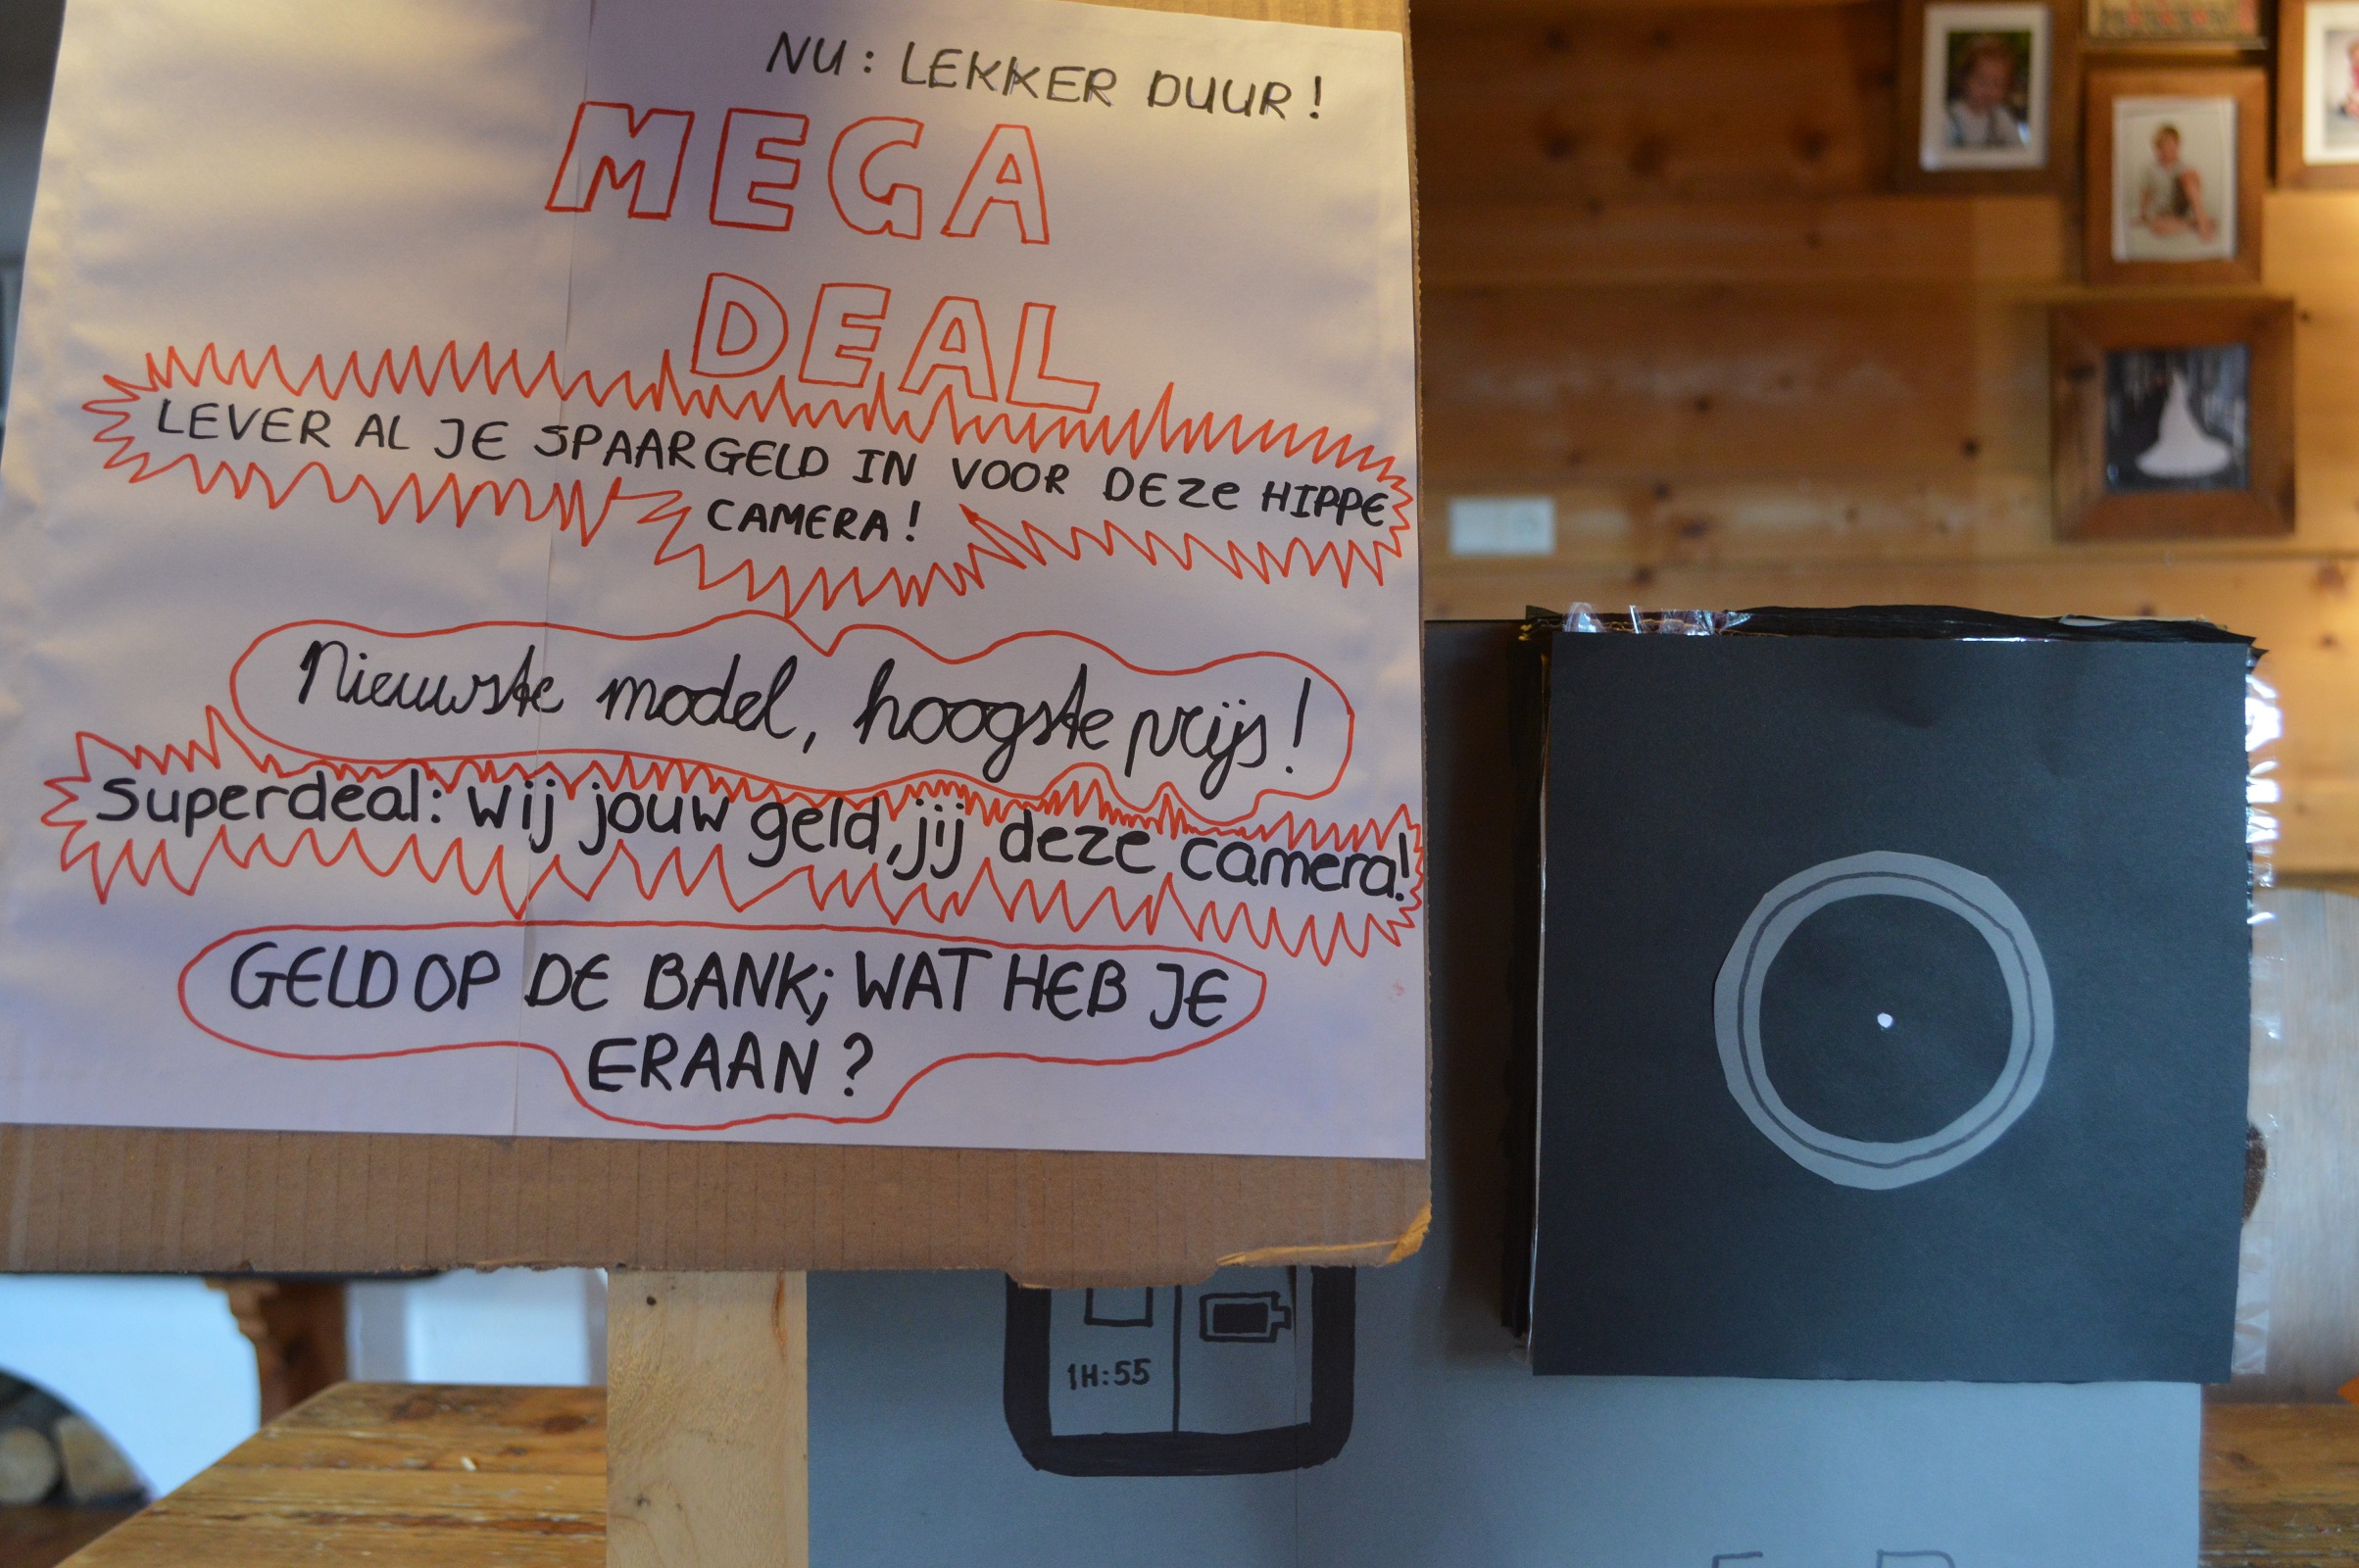 NU: LEKKER DUUR!
MEGA
DEAL
LEVER AL JE SPAARGELD IN VOOR DEZE HIPPE
CAMERA!
Nieuwste model, hoogste prijs!
Superdeal: wij jouw geld, jij deze camera!
GELD OP DE BANK; WAT HEB JE
ERAAN?
1H:55